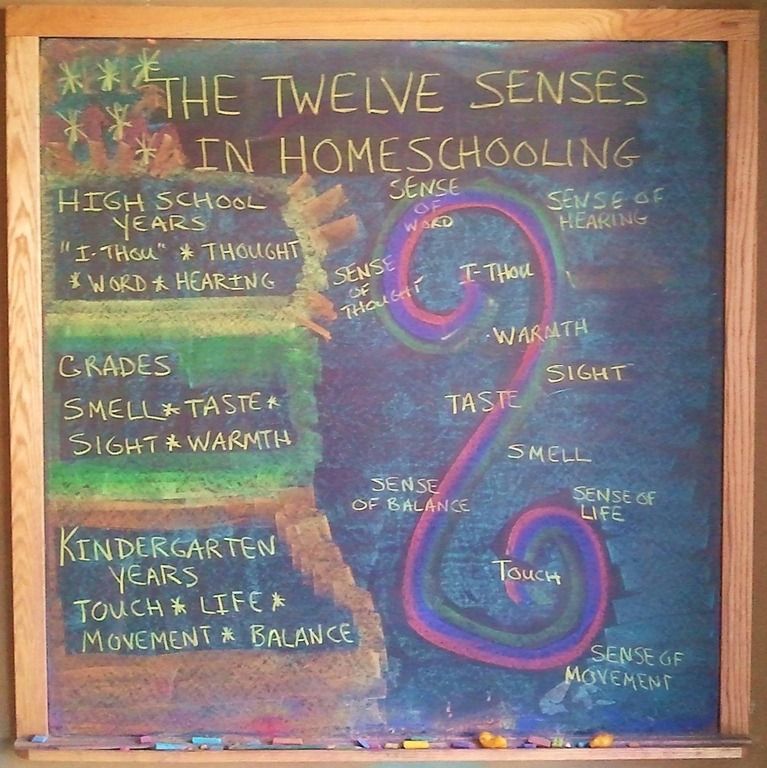 THE TWELVE SENSES
IN HOMESCHOOLING
HIGH SCHOOL
YEARS
"I-THOU" * THOUGHT
* WORD * HEARING
GRADES
SMELL * TASTE *
SIGHT * WARMTH
KINDERGARTEN
YEARS
TOUCH * LIFE *
MOVEMENT * BALANCE
SENSE
OF
WORD
SENSE OF
HEARING
SENSE
OF
THOUGHT
I-THOU
WARMTH
SIGHT
TASTE
SMELL
SENSE
OF BALANCE
SENSE OF
LIFE
TOUCH
SENSE OF
MOVEMENT